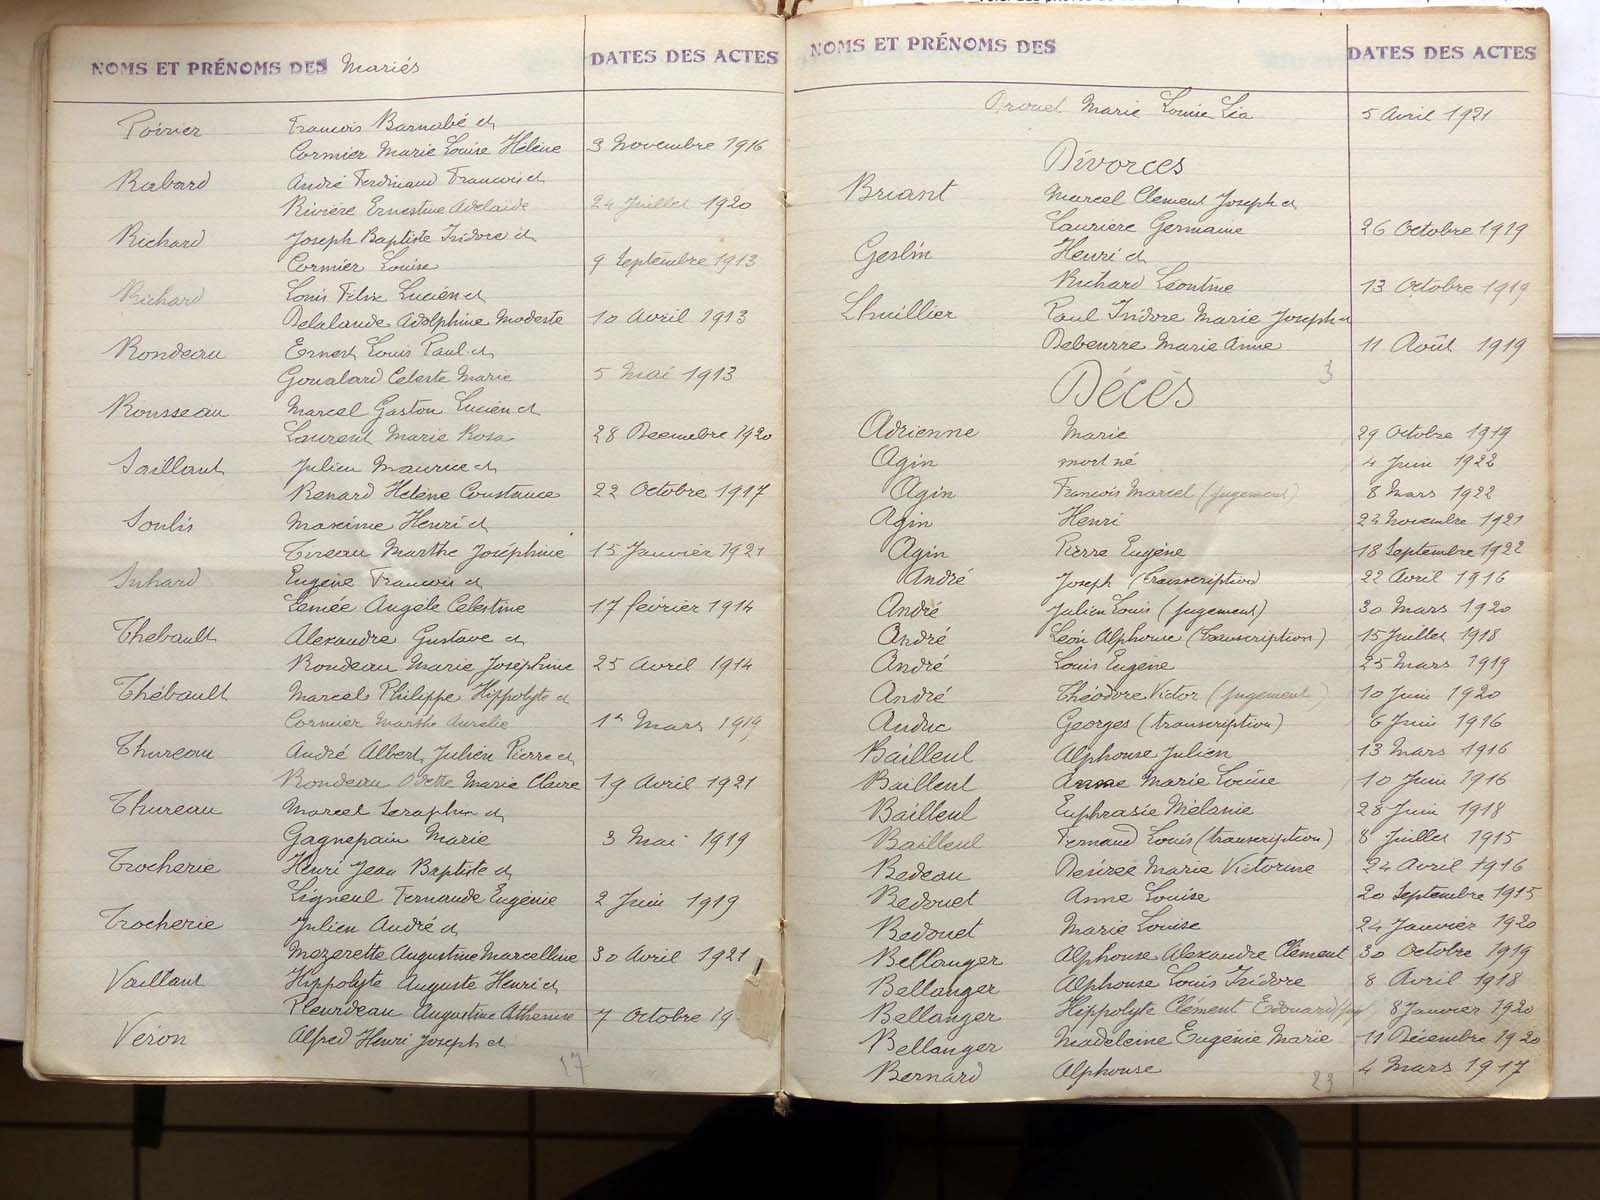 NOMS ET PRÉNOMS DES Mariés DATES DES ACTES
Poirier François Barnabé et
Cormier Marie Louise Hélène 3 Novembre 1916
Rabard André Ferdinand François et
Rivière Ernestine Adelaide 24 Juillet 1920
Richard Joseph Baptiste Isidore et
Cormier Louise 9 Septembre 1913
Richard Louis Félix Lucien et
Delalande Adolphine Modeste 10 Avril 1913
Rondeau Ernest Louis Paul et
Goualard Celeste Marie 5 Mai 1913
Rousseau Marcel Gaston Lucien et
Laurent Marie Rosa 28 Decembre 1920
Saillant Julien Maurice et
Renard Helène Constance 22 Octobre 1917
Soulis Maxime Henri et
Tireau Marthe Joséphine 15 Janvier 1921
Suhard Eugène François et
Lemée Angèle Celestine 17 février 1914
Thebault Alexandre Gustave et
Rondeau Marie Joséphine 25 Avril 1914
Thébault Marcel Philippe Hippolyte et
Cormier Marthe Aurelie 1er Mars 1919
Thureau André Albert Julien Pierre et
Rondeau Odette Marie Claire 19 Avril 1921
Thureau Marcel Seraphin et
Gagnepain Marie 3 Mai 1919
Trocherie Henri Jean Baptiste et
Ligneul Fernande Eugénie 2 Juin 1919
Trocherie Julien André et
Mezerette Augustine Marcelline 30 Avril 1921
Vaillant Hippolyte Auguste Henri et
Pleurdeau Augustine Athenise 7 Octobre 19
Véron Alfred Henri Joseph et
17
NOMS ET PRÉNOMS DES DATES DES ACTES
Drouet Marie Louise Léa 5 Avril 1921
Divorces
Briant Marcel Clement Joseph et
Lauriere Germaine 26 Octobre 1919
Geslin Henri et
Richard Léontine 13 Octobre 1919
Lhuillier Paul Isidore Marie Joseph et
Debeurre Marie Anne 11 Août 1919
3
Décès
Adrienne Marie 29 Octobre 1919
Agin mort né 4 Juin 1922
Agin François Marcel (jugement) 8 Mars 1922
Agin Henri 22 Novembre 1921
Agin Pierre Eugène 18 Septembre 1922
André Joseph (transcription) 22 Avril 1916
André Julien Louis (jugement) 30 Mars 1920
André Léon Alphonse (transcription) 15 Juillet 1918
André Louis Eugène 25 Mars 1919
André Théodore Victor (jugement) 10 Juin 1920
Auduc Georges (transcription) 6 Juin 1916
Bailleul Alphonse Julien 13 Mars 1916
Bailleul Anne Marie Louise 10 Juin 1916
Bailleul Euphrasie Mélanie 28 Juin 1918
Bailleul Fernand Louis (transcription) 8 Juillet 1915
Bedeau Desirée Marie Victorine 24 Avril 1916
Bedouet Anne Louise 20 Septembre 1915
Bedouet Marie Louise 24 Janvier 1920
Bellanger Alphonse Alexandre Clément 30 Octobre 1919
Bellanger Alphonse Louis Isidore 8 Avril 1918
Bellanger Hippolyte Clément Edouard 8 Janvier 1920
Bellanger Madeleine Eugénie Marie 11 Décembre 1920
Bernard Alphonse 4 Mars 1917
23